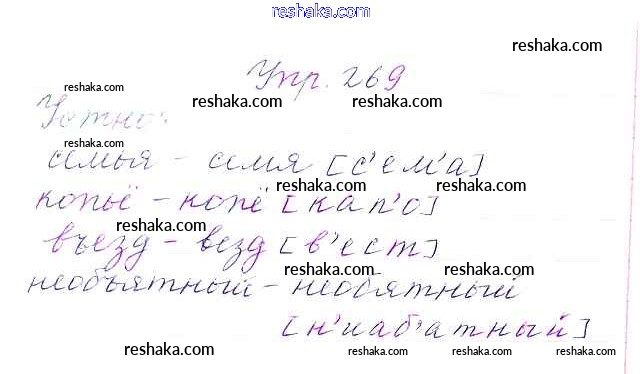 reshaka.com
reshaka.com
Упр. 269
reshaka.com reshaka.com reshaka.com
Устно:
reshaka.com
семья - семя [с'ем'а]
reshaka.com reshaka.com
копьё - копё [кап'о]
reshaka.com reshaka.com
въезд - везд [в'ест]
reshaka.com reshaka.com
необъятный - необятный
[н'иаб'атный]
reshaka.com reshaka.com reshaka.com